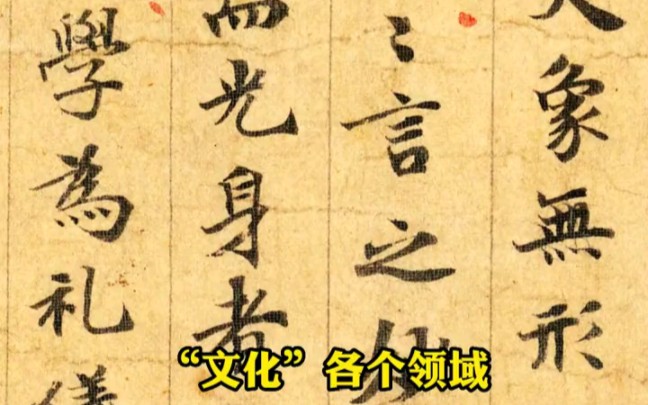 象無形
言之
光身者
學為礼
“文化”各个领域